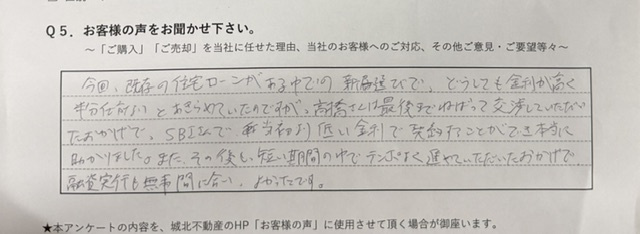 Q5. お客様の声をお聞かせ下さい。
～「ご購入」「ご売却」を当社に任せた理由、当社のお客様へのご対応、その他ご意見・ご要望等々～
今回、既存の住宅ローンがある中での新居選びで、どうしても金利が高く
半分仕方ないとあきらめていたのですが、高橋さんは最後までねばって交渉していただい
たおかげで、SBIさんで当初より低い金利で契約することができ本当に
助かりました。また、その後も、短い期間の中でテンポよく進めていただいたおかげで
融資実行も無事間に合い、よかったです。
★本アンケートの内容を、城北不動産のHP「お客様の声」に使用させて頂く場合が御座います。